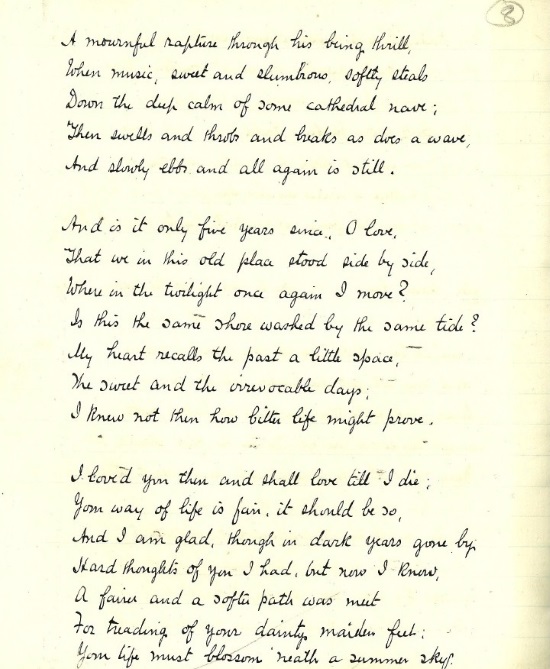 8
A mournful rapture through his being thrill,
When music, sweet and slumbrous, softly steals
Down the deep calm of some cathedral nave;
Then swells and throbs and breaks as does a wave,
And slowly ebbs and all again is still.
And is it only five years since, O love,
That we in this old place stood side by side,
Where in the twilight once again I move?
Is this the same shore washed by the same tide?
My heart recalls the past a little space,
The sweet and the irrevocable days;
I knew not then how bitter life might prove.
I loved you then and shall love till I die;
Your way of life is fair, it should be so,
And I am glad, though in dark years gone by
Hard thoughts of you I had, but now I know,
A fairer and a softer path was meet
For treading of your dainty maiden feet:
Your life must blossom 'neath a summer sky.